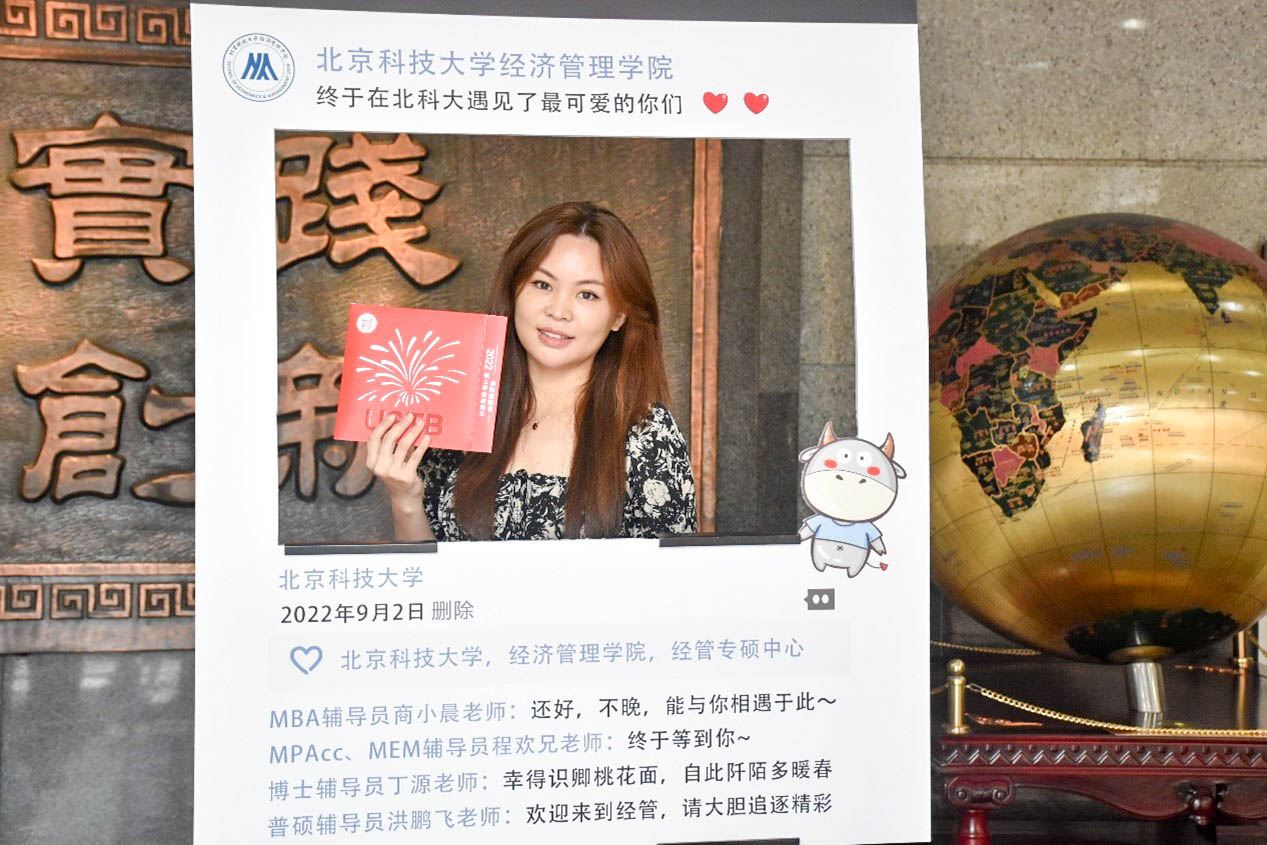 北京科技大学经济管理学院
终于在北科大遇见了最可爱的你们
實踐
創新
2022
USTB
北京科技大学
2022年9月2日 删除
北京科技大学，经济管理学院，经管专硕中心
MBA辅导员商小晨老师：还好，不晚，能与你相遇于此～
MPAcc、MEM辅导员程欢兄老师：终于等到你~
博士辅导员丁源老师：幸得识卿桃花面，自此阡陌多暖春
普硕辅导员洪鹏飞老师：欢迎来到经管，请大胆追逐精彩